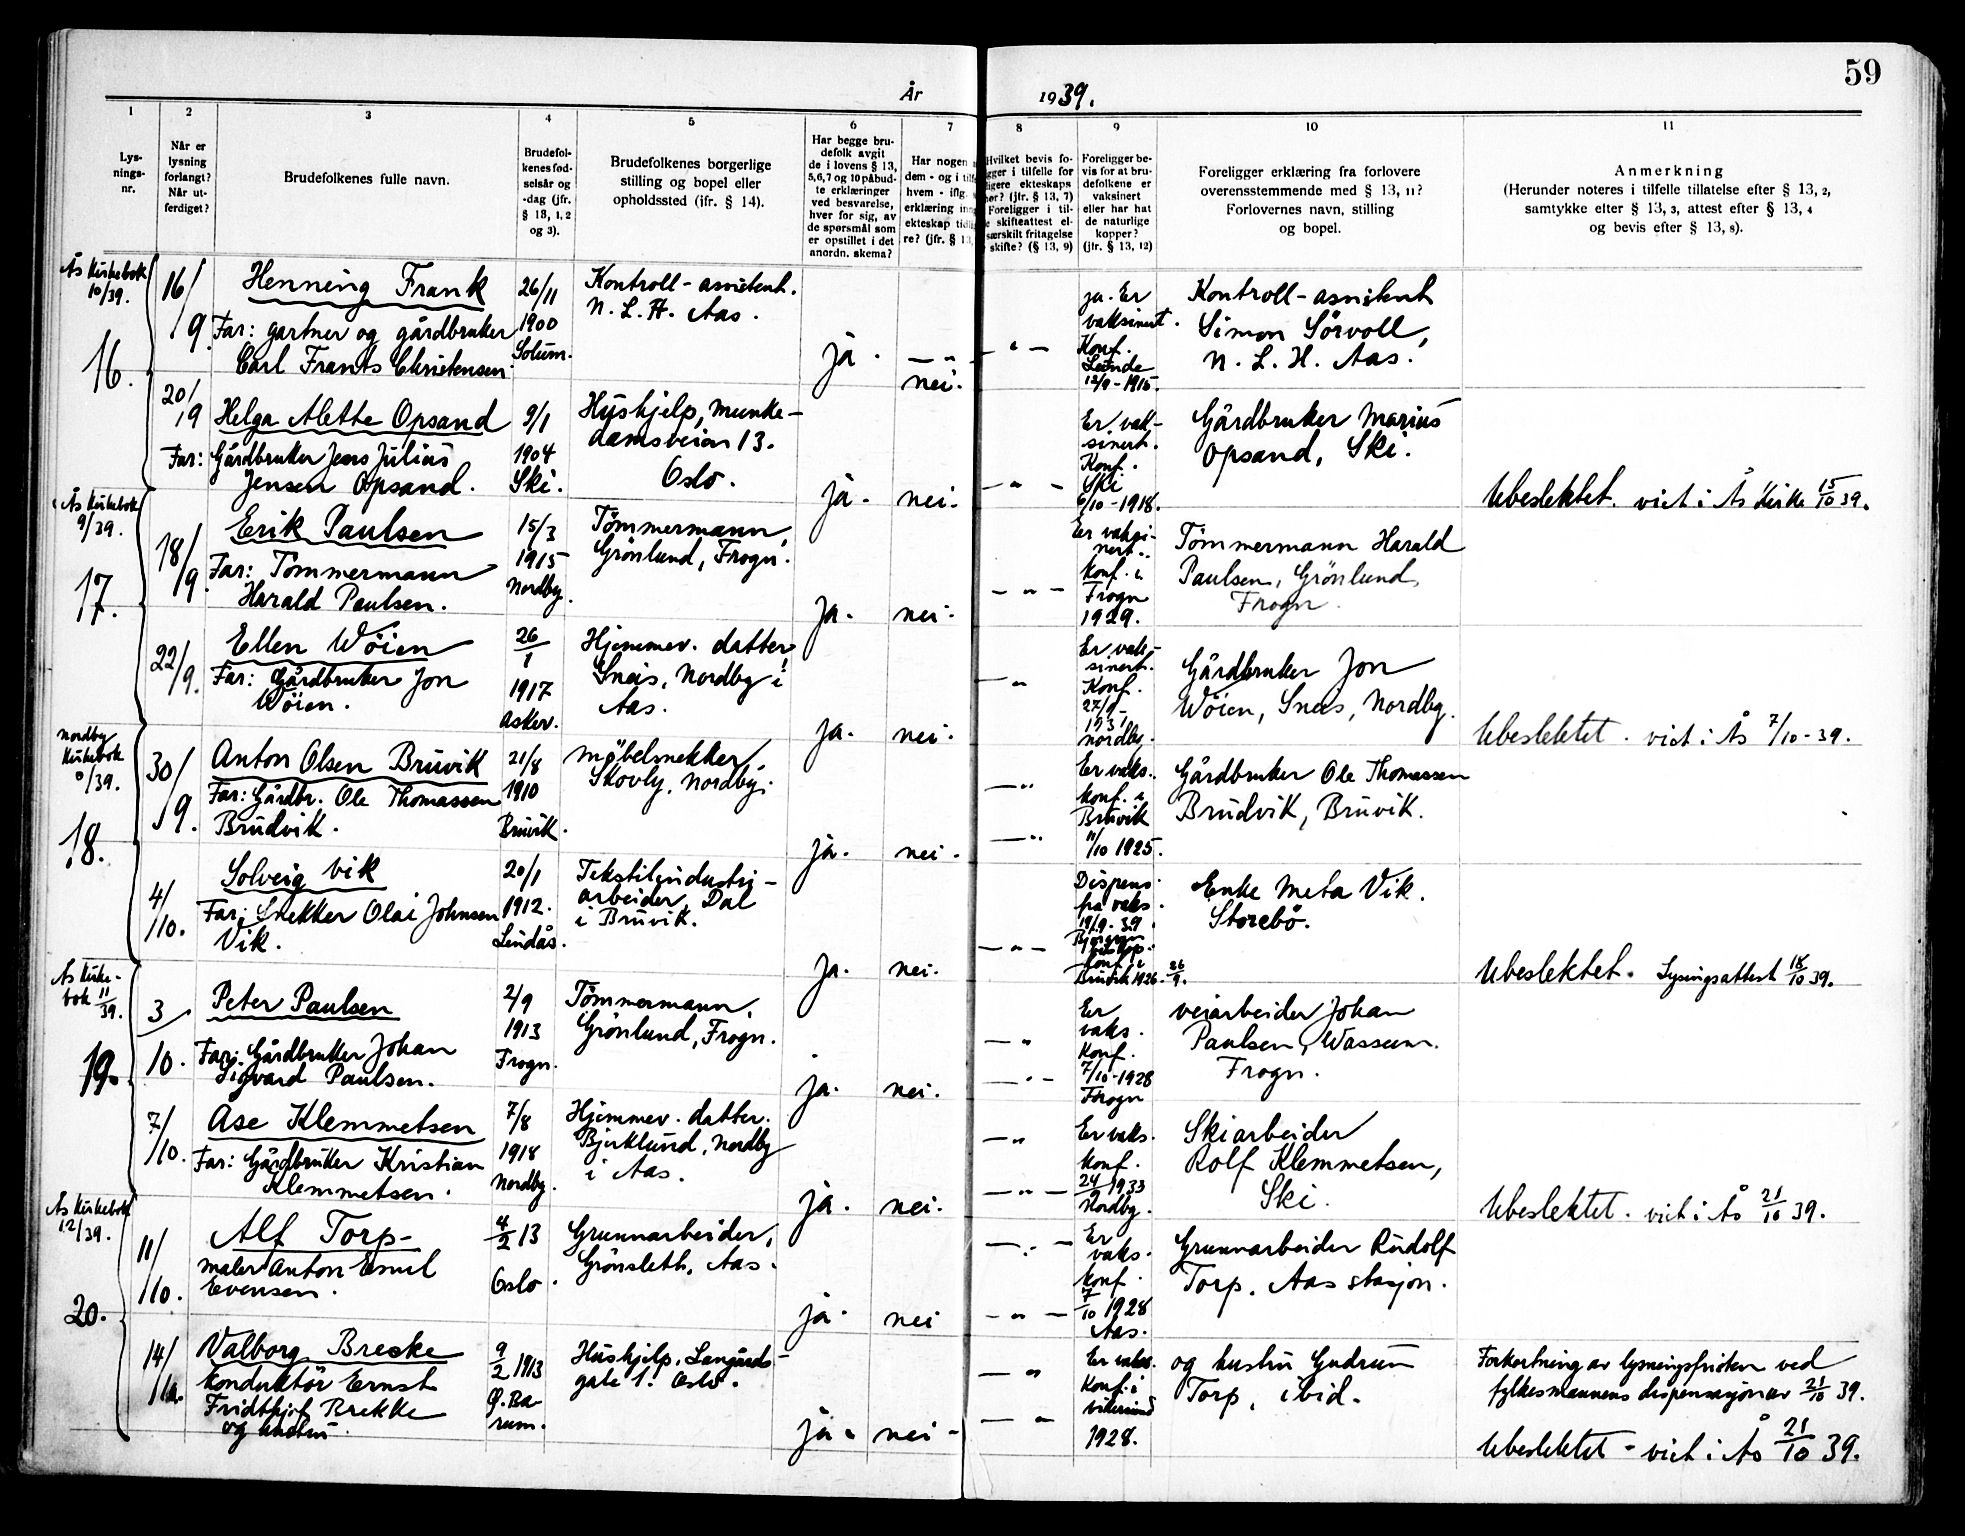 59
År 1939.
1 2 3 4 5 6 7 8 9 10 11
Lys-
nings-
nr.
Når er
lysning
forlangt?
Når ut-
ferdiget?
Brudefolkenes fulle navn.
Brudefol-
kenes fød-
selsår og
-dag (jfr.
§ 13, 1, 2
og 3).
Brudefolkenes borgerlige
stilling og bopel eller
opholdssted (jfr. § 14).
Har begge bru-
defolk avgit
de i lovens § 13,
5, 6, 7 og 10 påbud-
te erklæringer
ved besvarelse,
hver for sig, av
de spørsmål som
er opstillet i det
anordn. skema?
Har nogen
dem - og i tilf
hvem - iflg.
erklæring inn
ekteskap tidl
re? (jfr. § 13,
Hvilket bevis fo-
gger i tilfelle for
ligere ekteskaps
hør? (jfr. § 13, 7)
Foreligger i til-
e skifteattest el-
særskilt fritagelse
skifte? (§ 13, 9)
Foreligger be-
vis for at bru-
defolkene er
vaksinert
eller har hat
de naturlige
kopper?
(jfr. § 13, 12)
Foreligger erklæring fra forlovere
overensstemmende med § 13, 11?
Forlovernes navn, stilling
og bopel.
Anmerkning
(Herunder noteres i tilfelle tillatelse efter § 13, 2,
samtykke efter § 13, 3, attest efter § 13, 4
og bevis efter § 13, 8).
Ås Kirkebok
10/39.
16.
16/9.
Henning Frank
Far: gartner og gårdbruker
Carl Frants Christensen
26/11
1900
Solum.
Kontroll-assistent.
N. L. H. Aas.
ja.
— " —
nei.
— " —
ja. Er
vaksinert.
Konf.
Lunde
12/9-1915.
Kontroll-assistent
Simon Sörvoll,
N. L. H. Aas.
20/9
Helga Alette Opsand
Far: Gårdbruker Jens Julius
Jensen Opsand.
9/1
1904
Ski.
Hushjelp, Munke-
damsveien 13.
Oslo.
ja.
nei.
— " —
Er vak-
sinert.
Konf.
Ski
6/10-1918.
Gårdbruker Marius
Opsand, Ski.
Ubeslektet. viet i Ås Kirke 15/10 39.
Ås Kirkebok
9/39.
17.
18/9.
Erik Paulsen
Far: Tömmermann
Harald Paulsen.
15/3
1915
Nordby.
Tömmermann,
Grönlund, Frogn.
ja.
nei.
— " —
Er vaksi-
nert.
Konf. i
Frogn
1929.
Tömmermann Harald
Paulsen, Grönlund,
Frogn.
22/9.
Ellen Wöien
Far: Gårdbruker Jon
Wöien.
26/1
1917
Asker.
Hjemmev. datter,
Sneis, Nordby i
Aas.
ja.
nei.
— "
Er vak-
sinert.
Konf.
27/9-
1931
Nordby.
Gårdbruker Jon
Wöien, Sneis, Nordby.
Ubeslektet. viet i Ås 7/10-39.
Nordby
Kirkebok
/39.
18.
30/9.
Anton Olsen Bruvik
Far: Gårdbr. Ole Thomassen
Brudvik.
21/8
1910
Bruvik.
möbelsnekker,
Skovly, Nordby.
ja.
nei.
— "
— "
Er vaks.
Konf. i
Bruvik
11/10 1925.
Gårdbruker Ole Thomassen
Brudvik, Bruvik.
4/10.
Solveig Vik
Far: Snekker Olai Johnsen
Vik.
20/1
1912.
Lindås.
Tekstilindustri-
arbeider, Dal
i Bruvik.
ja.
nei.
— " —
Dispens.
fra vaks.
19/9-39.
Konf. i
Bruvik 1926. 26/9.
Enke Meta Vik.
Storebö.
Ubeslektet. Lysningsattest 18/10 39.
Ås Kirke-
bok 11/39.
19.
3/10.
Peter Paulsen
Far: Gårdbruker Johan
Sigvard Paulsen.
2/9
1913
Frogn.
Tömmermann,
Grönlund, Frogn.
ja.
nei.
— "
— " —
Er
vaks.
Konf.
7/10-1928
Frogn
veiarbeider Johan
Paulsen, Wassum.
Frogn.
7/10.
Ase Klemmetsen
Far: Gårdbruker Kristian
Klemmetsen.
7/8
1918
Nordby.
Hjemmev. datter.
Bjerklund, Nordby
i Aas.
ja.
nei.
— "
— " —
Er vaks.
Konf.
24/9 1933
Nordby.
Skiarbeider
Rolf Klemmetsen,
Ski.
Ubeslektet. viet i Ås 21/10 39.
Ås Kirkebok
12/39.
20.
11/10.
Alf Torp-
maler Anton Emil
Evensen.
4/2 13
Oslo.
Grunnarbeider,
Grönsleth, Aas.
ja.
nei
— " —
— " —
Er
vaks.
Konf.
7/10 1928
Aas.
Grunnarbeider Rudolf
Torp, Aas stasjon.
14/10.
Valborg Brecke
konduktör Ernst
Fridthjof Brekke
og hustru
9/2 1913
Ø. Bæ-
rum.
Hushjelp, Langårds-
gate 1. Oslo.
ja.
nei-
— "
— "
Er vaks.
Konf. i
1928.
og hustru Gudrun
Torp, ibid.
Forkortning av lysningsfristen ved
fylkesmannens dispensasjon av 21/10 39.
Ubeslektet - viet i Ås 21/10 39.